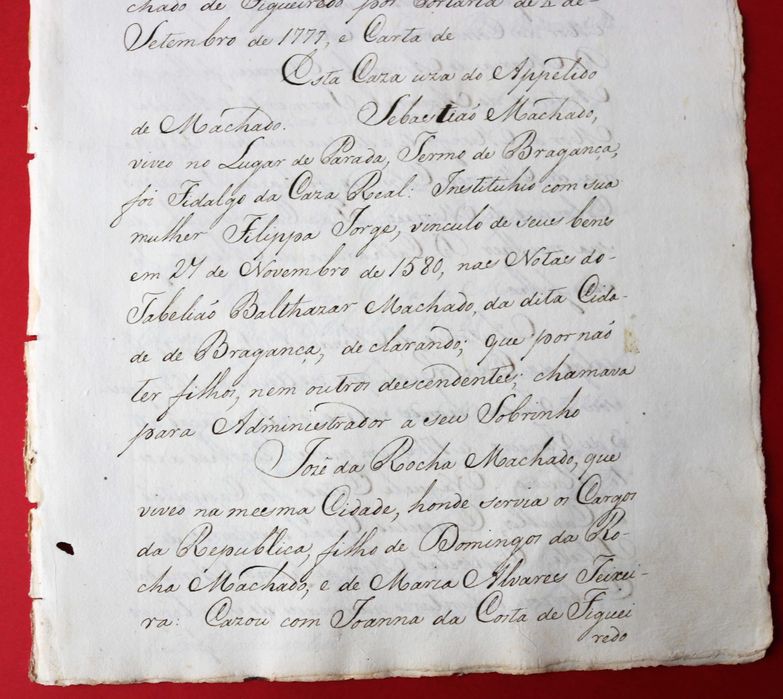 chado de Figueiredo por Portaria de 4 de-
Setembro de 1777, e Carta de
Esta Caza uza do Appelido
de Machado. Sebastiaõ Machado,
viveo no Lugar de Parada, Termo de Bragança,
foi Fidalgo da Caza Real: Instituhio com sua
mulher Filippa Jorge, vinculo de seus bens
em 27 de Novembro de 1580, nas Notas do-
Tabeliaõ Balthazar Machado, da dita Cida-
de de Bragança, declarando; que por naõ
ter filhos, nem outros descendentes; chamava
para Administrador a seu Sobrinho
Jozé da Rocha Machado, que
viveo na mesma Cidade, honde servia os Cargos
da Republica, filho de Domingos da Ro-
cha Machado, e de Maria Alvares Teixei-
ra: Cazou com Joanna da Costa de Figuei
redo